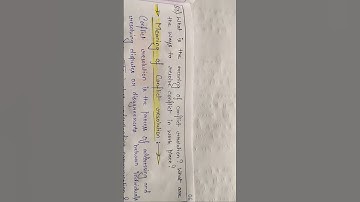 Q) What is the meaning of conflict resolution? What are
the ways to resolve conflict in work place?
→ Meaning of Conflict resolution :- →
Conflict resolution is the process of addressing and
resolving disputes or disagreements between individuals